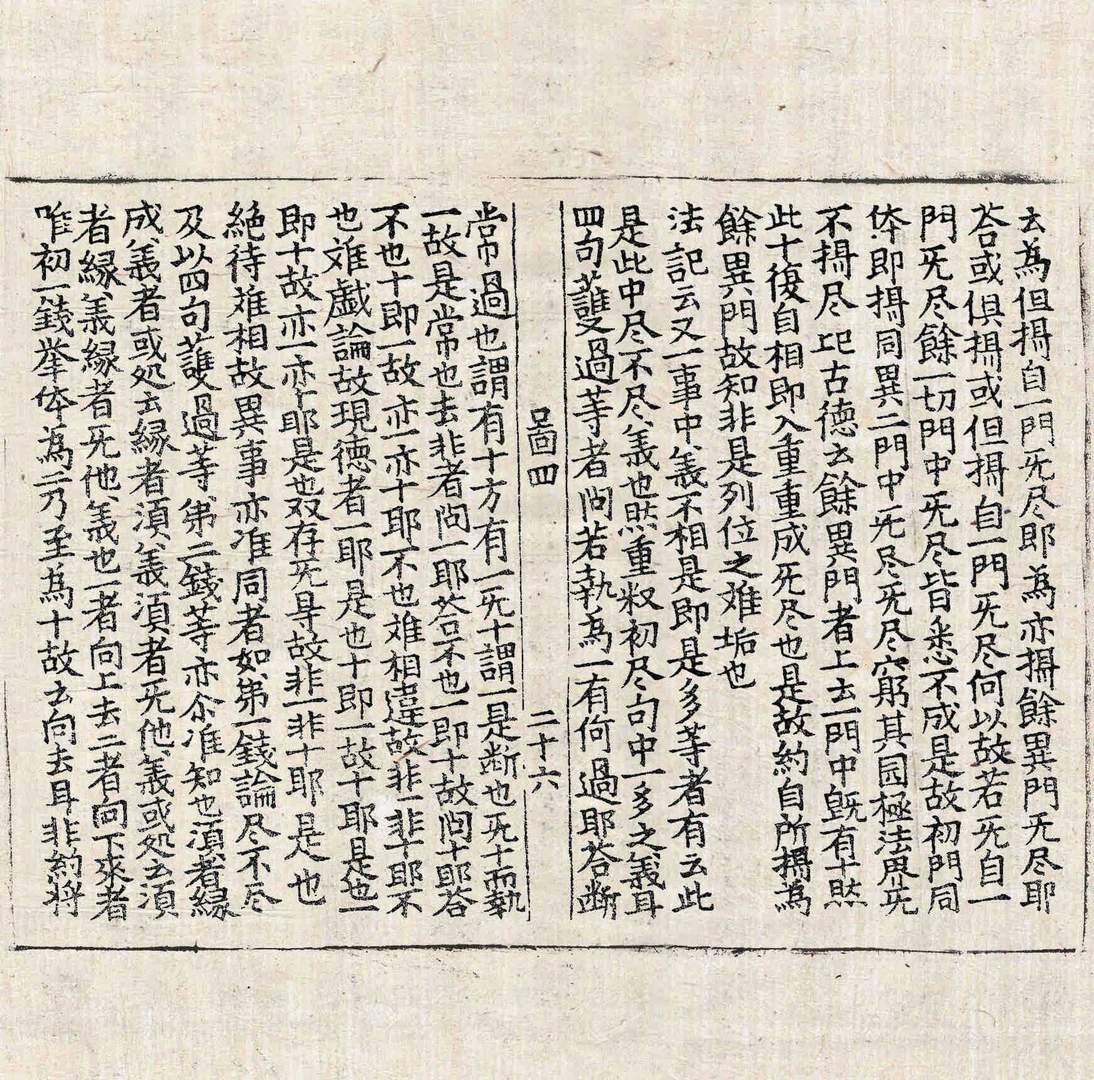 去為但攝自一門无尽耶為亦攝餘異門无尽耶
荅或俱攝或但攝自一門无尽何以故若无自一
門无尽餘一切門中无尽皆悉不成是故初門同
体即攝同異二門中无尽无尽窮其园極法界无
不攝尽 古德云餘異門者上云一門中旣有十然
此十復自相即入重重成无尽也是故約自所攝為
餘異門故知非是列位之难垢也
法記云又一事中義不相是即是多等者有云此
是此中尽不尽義也然重叙初尽句中一多之義耳
四句護過等者问若執為一有何過耶荅断
囗啚四 二十六
常過也謂有十方有一无十謂一是断也无十而執
一故是常也去非者问一耶荅不也一即十故问十耶荅
不也十即一故亦一亦十耶不也难相違故非一非十耶不
也难戱論故現德者一耶是也十即一故十耶是也一
即十故亦一亦十耶是也双存无㝵故非一非十耶是也
絶待难相故異事亦准同者如第一錢論尽不尽
及以四句護過等第二錢等亦尒准知也湏者緣
成義者或処云緣者湏義湏者无他義或処云湏
者緣義緣者无他義也一者向上去二者向下来者
唯初一錢挙体為二乃至為十故云向去耳非約將